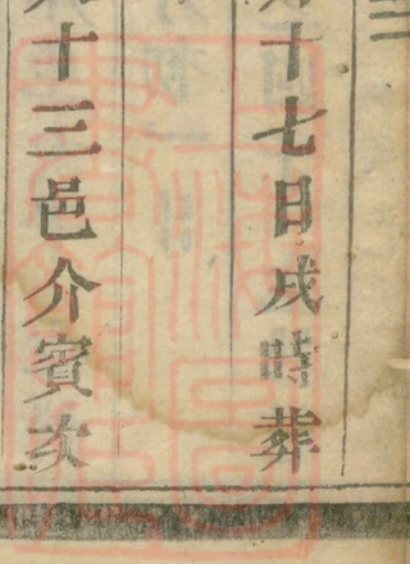 十七日戌時葬
十三邑介賓次